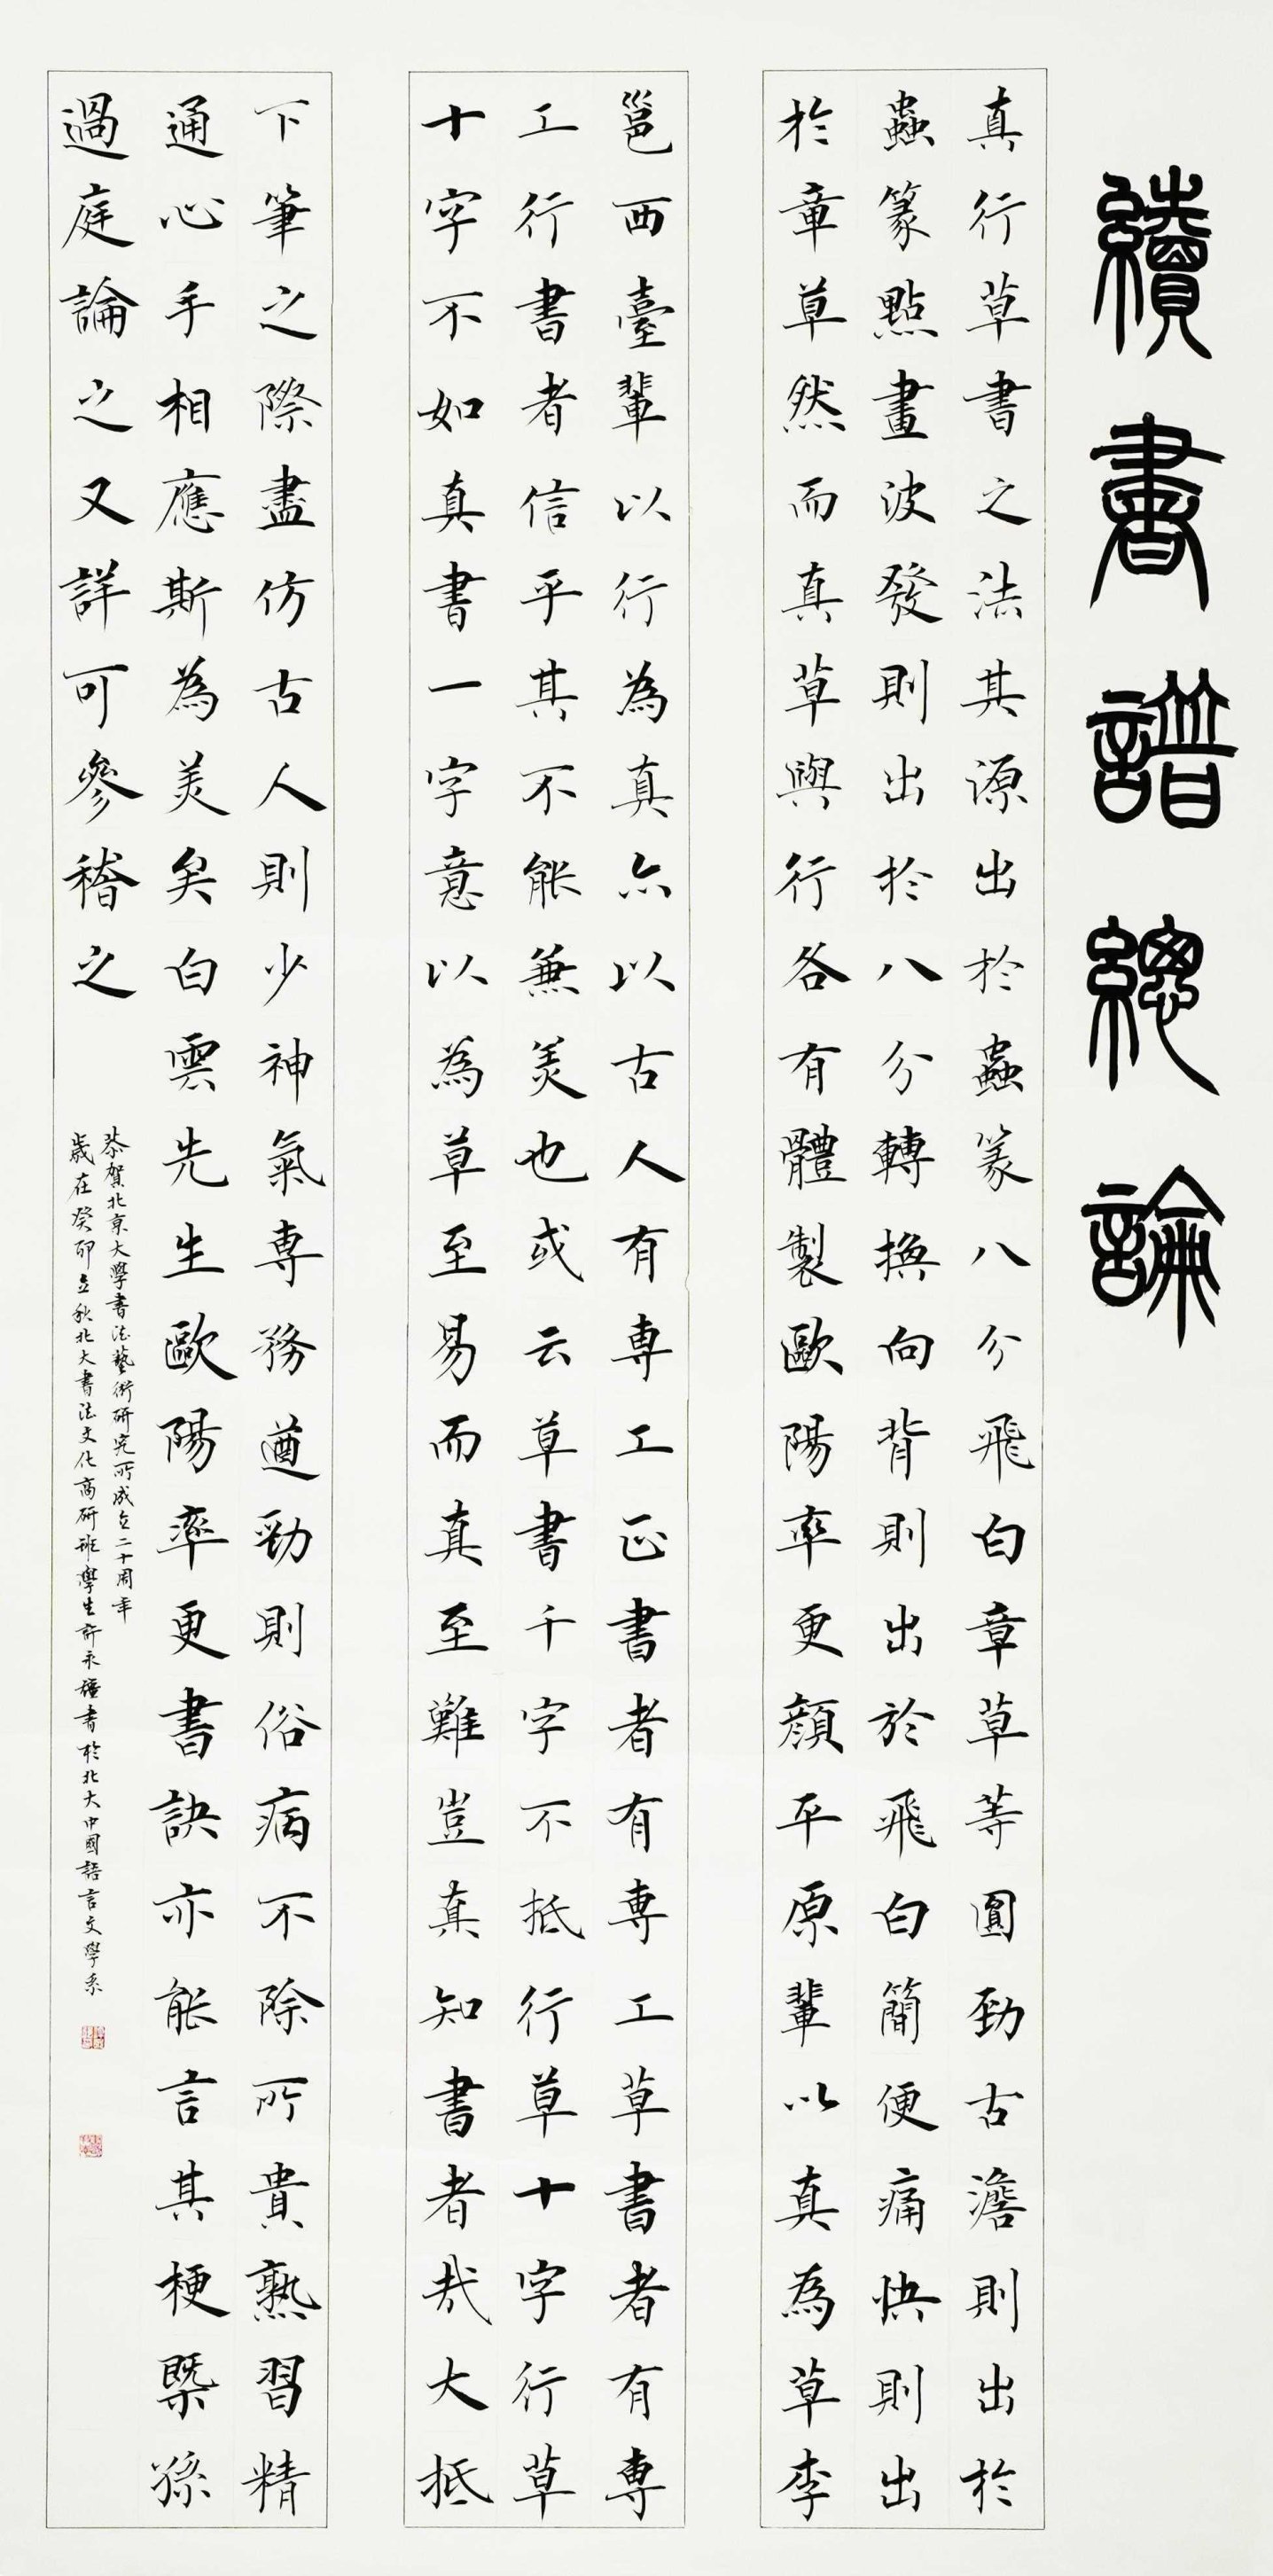 續書譜總論
真行草書之法其源出於蟲篆八分飛白章草等圓勁古澹則出於
蟲篆點畫波發則出於八分轉換向背則出於飛白簡便痛快則出
於章草然而真草與行各有體製歐陽率更顏平原輩以真為草李
邕西臺輩以行為真亦以古人有專工正書者有專工草書者有專
工行書者信乎其不能兼美也或云草書千字不抵行草十字行草
十字不如真書一字意以為草至易而真至難豈真知書者哉大抵
下筆之際盡仿古人則少神氣專務遒勁則俗病不除所貴熟習精
通心手相應斯為美矣白雲先生歐陽率更書訣亦能言其梗概孫
過庭論之又詳可參稽之
恭賀北京大學書法藝術研究所成立二十周年
歲在癸卯立秋北大書法文化高研班學生許永書於北大中國語言文學系